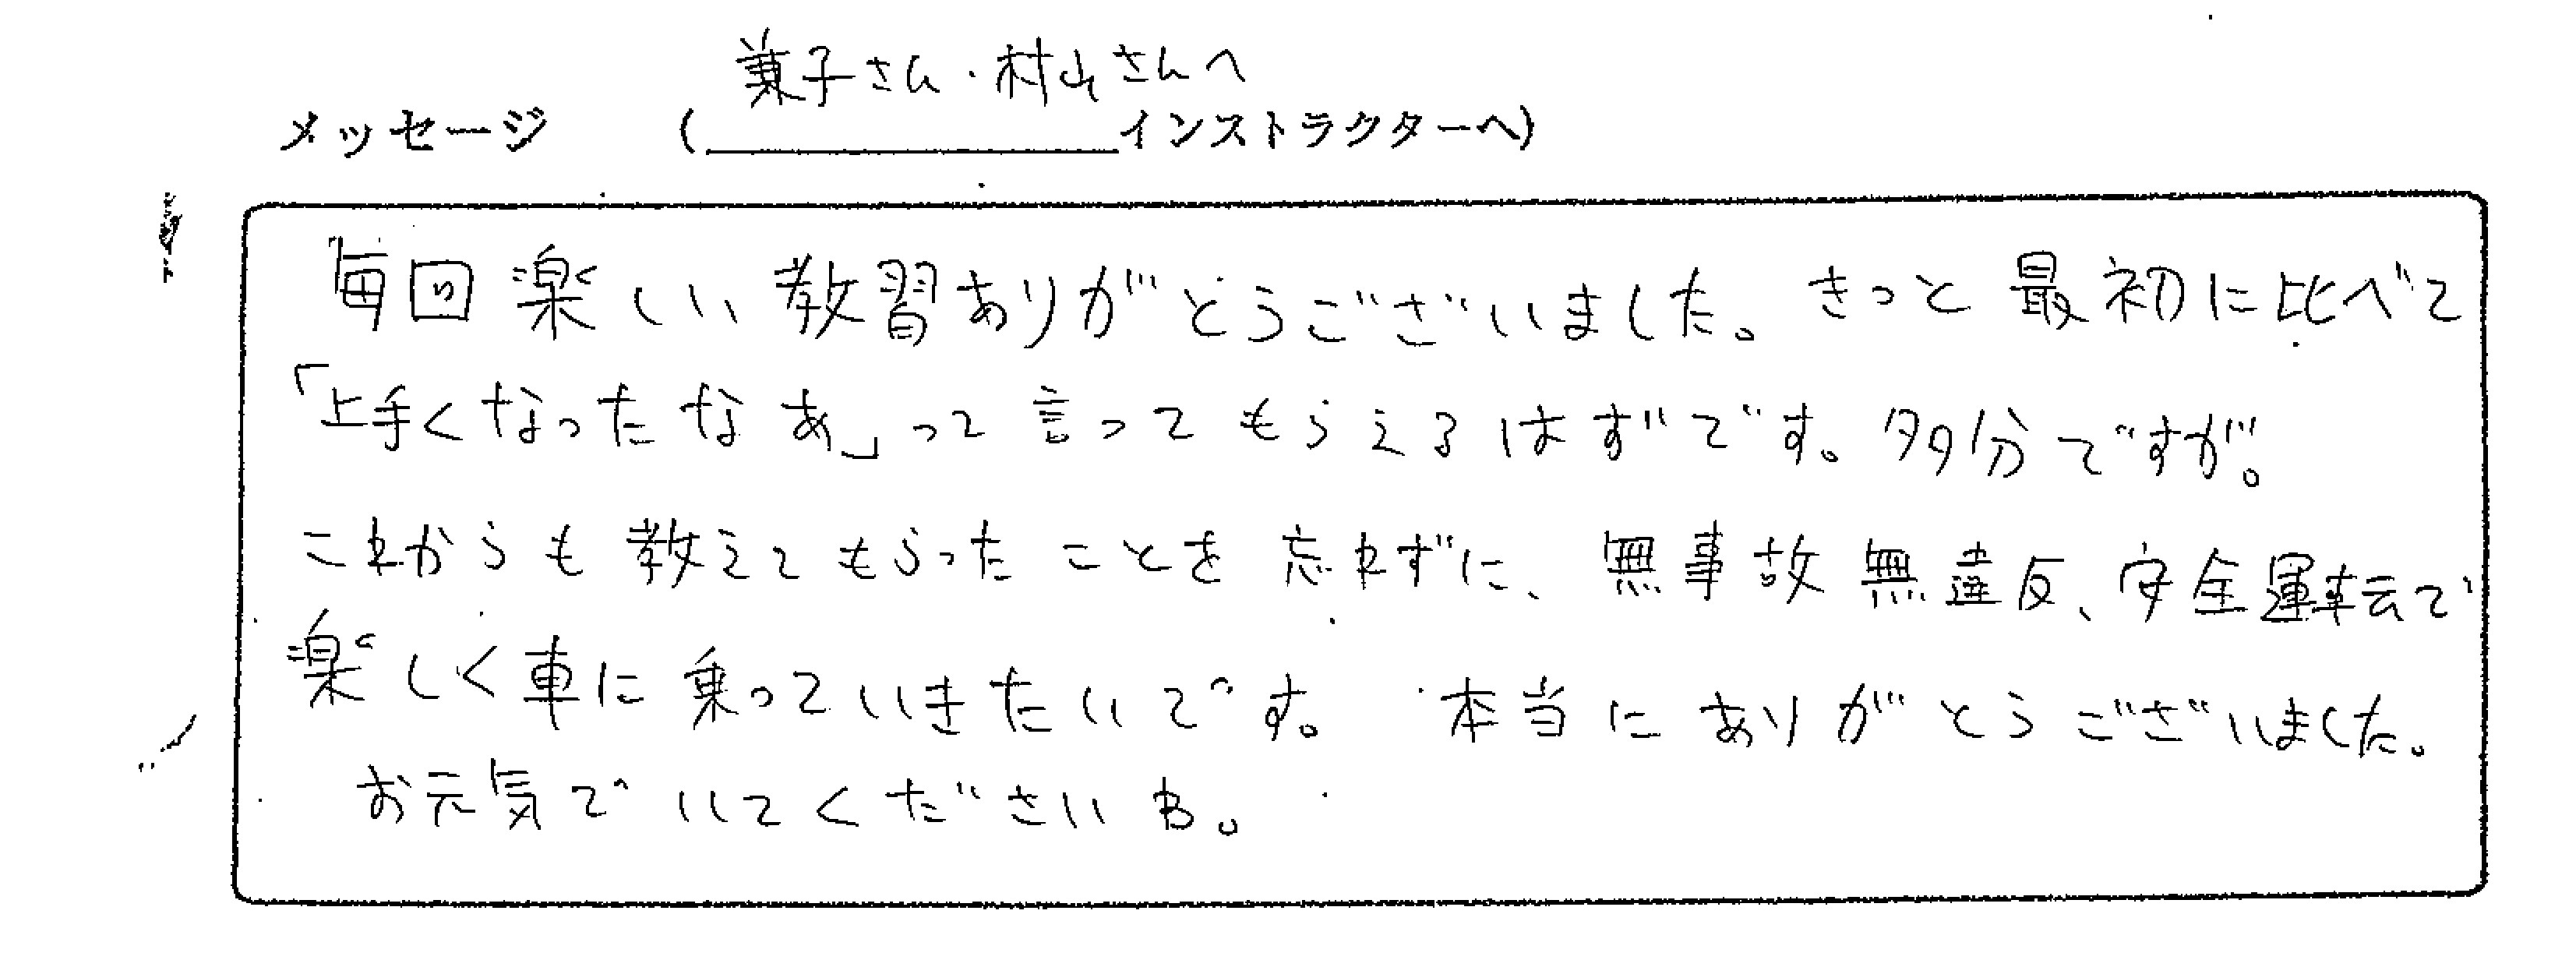 兼子さん・村山さんへ
メッセージ (＿＿＿＿＿＿インストラクターへ)
毎回楽しい教習ありがとうございました。きっと最初に比べて
「上手くなったなぁ」って言ってもらえるはずです。多分ですが。
これからも教えてもらったことを忘れずに、無事故無違反、安全運転で
楽しく車に乗っていきたいです。本当にありがとうございました。
お元気でいてくださいね。